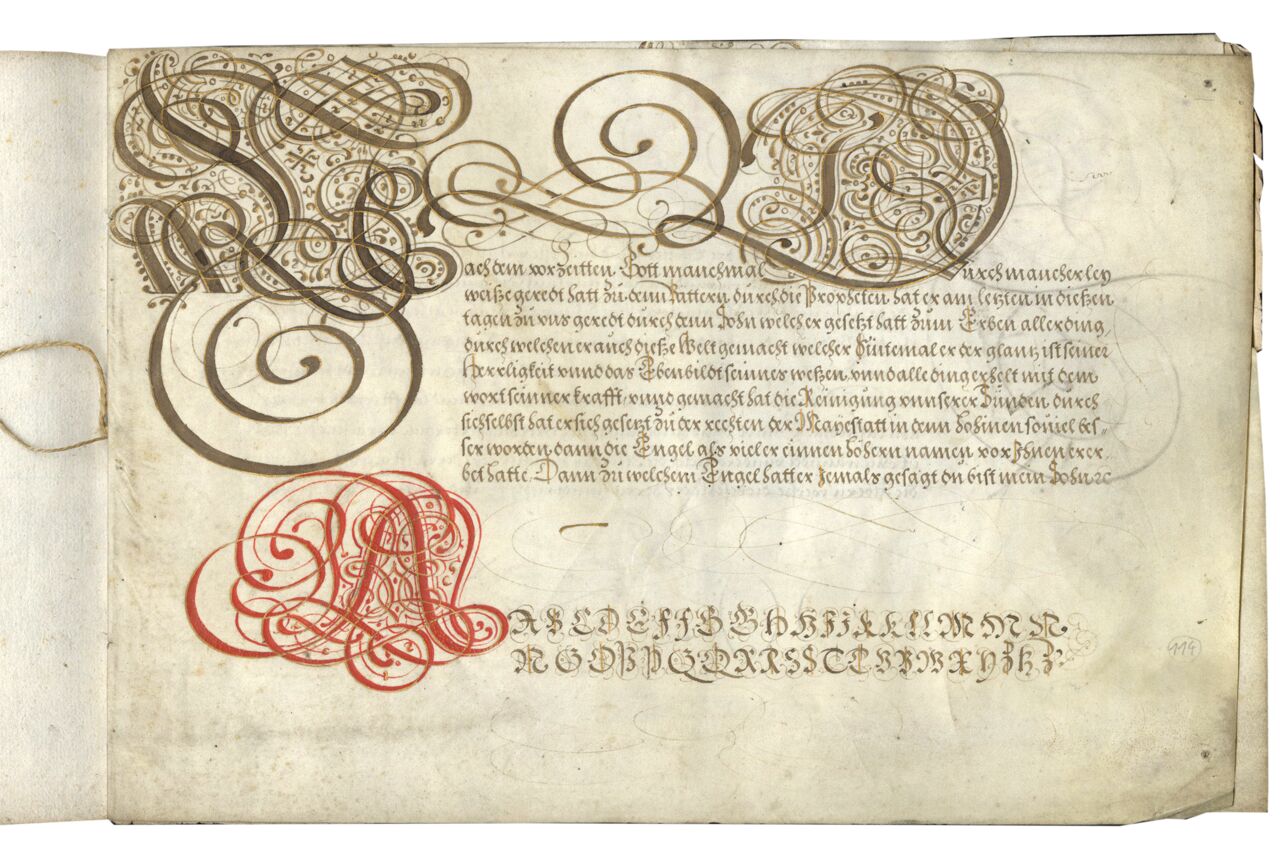 Nach dem vor Zeitten Gott manchmal Durch mancherley
weiße geredt hatt Zu denn Vattern durch die Propheten hat er am letzten in dießen
tagen Zu vns geredt durch denn Sohn welcher gesetzt hatt Zum Erben aller ding,
durch welchen er auch dieße Welt gemacht welcher Sintemal er der glantz ist seiner
Herrligkeit vnnd das Ebenbildt seinnes weßen, vnnd alle ding erhelt mit dem
wort seinner krafft, vnnd gemacht hat die Reinigung vnnserer Sünden, durch
sich selbst hat er sich gesetzt Zu der rechten der Mayestatt in denn hohinen so viel bes=
ser worden, dann die Engel als vieler einnen höhern namen vor Ihnen erer=
bet hatte. Dann Zu welchem Engel hatt er Jemals gesagt du bist mein Sohn ꝛc
A
A B C D E F F G G H H I J K K L L M M N
N O O P P Q Q R R S S T T V V W X Y Z tz Z
114